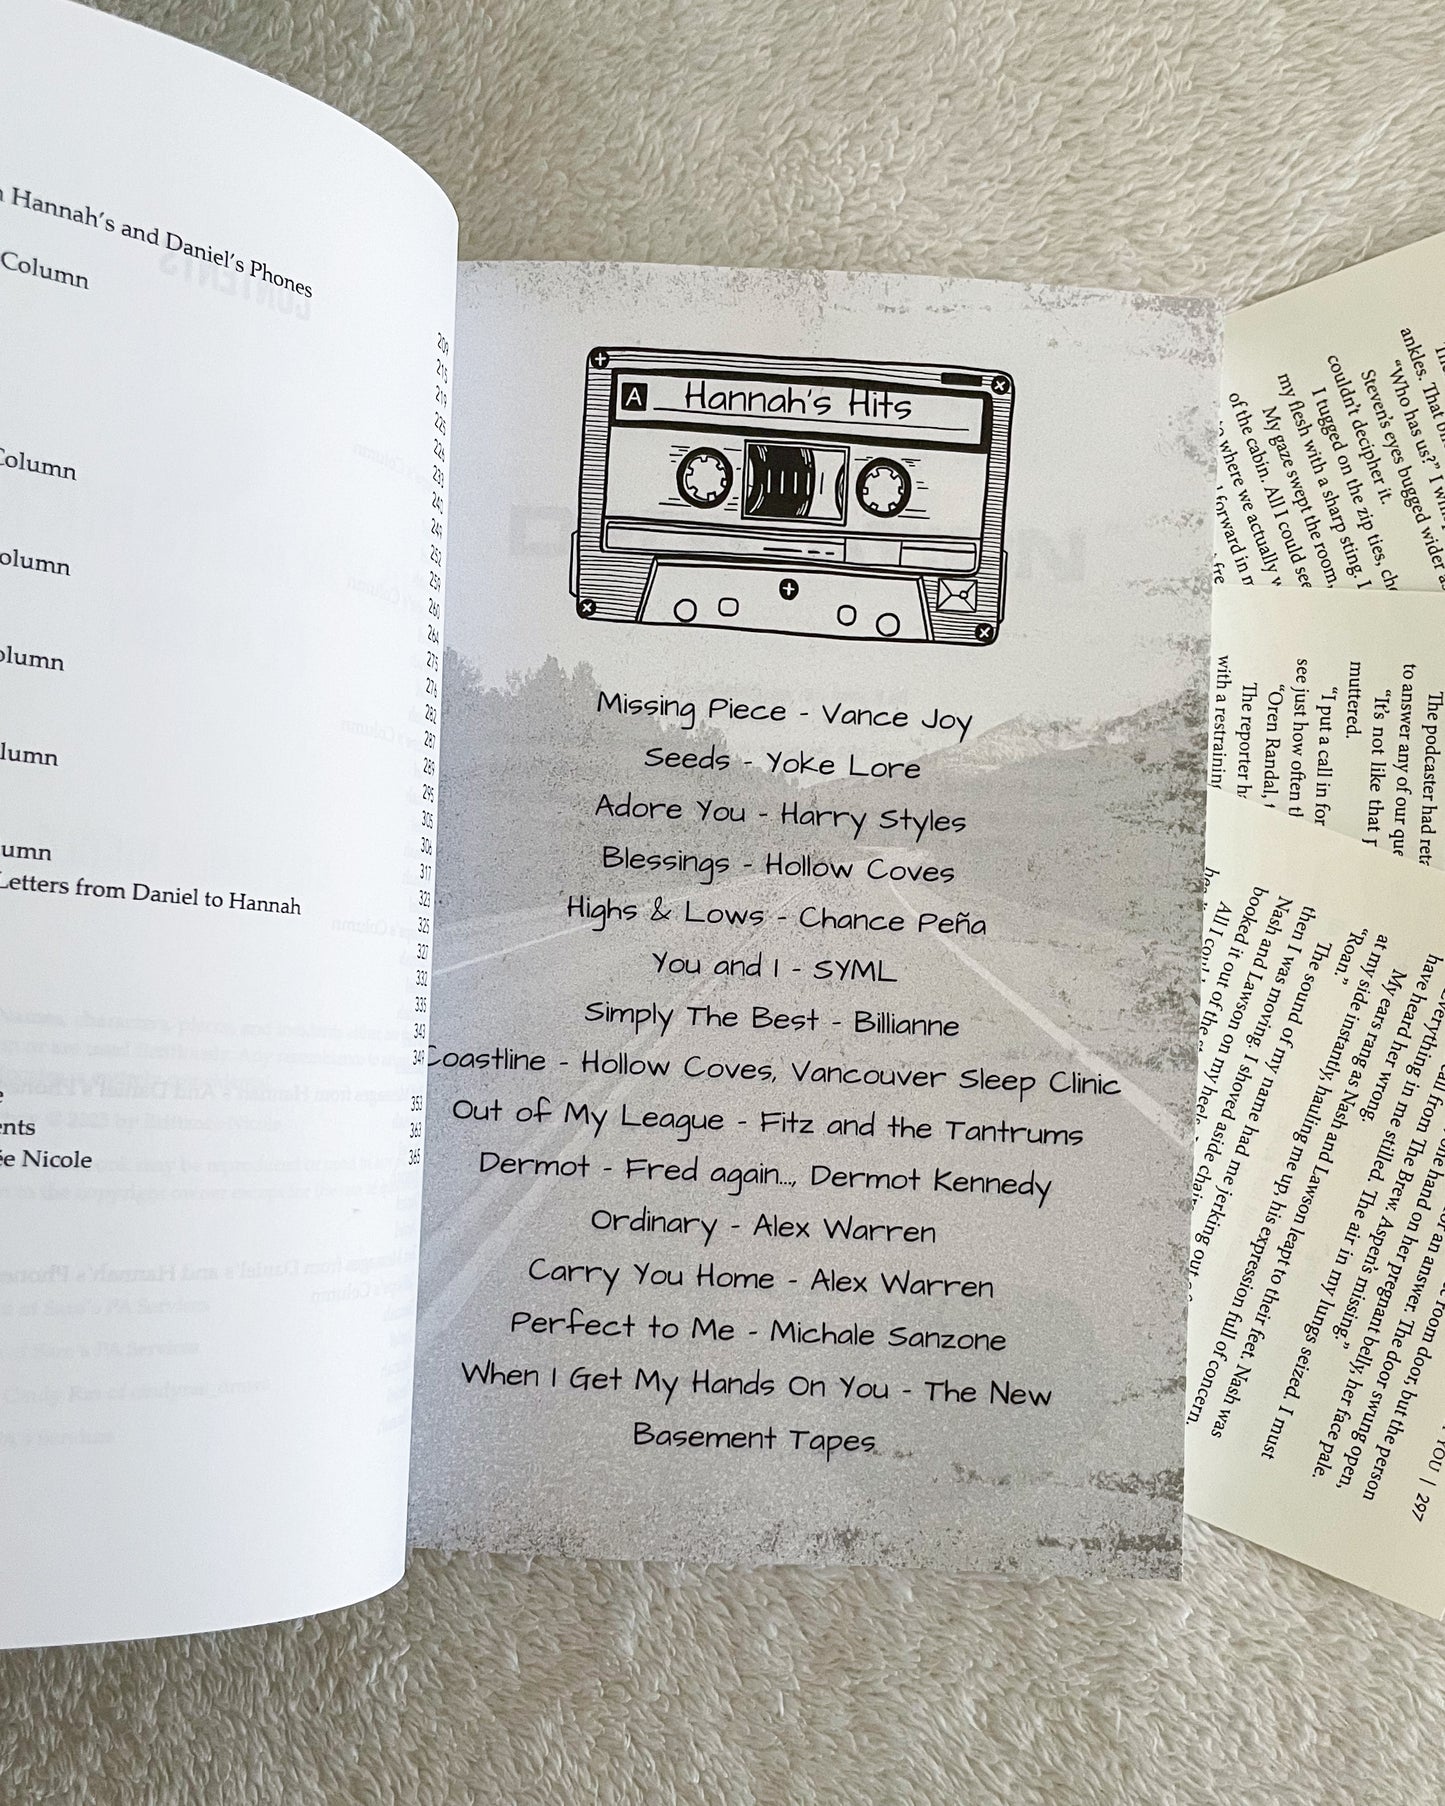 Hannah's and Daniel's Phones
Column
209
215
219
225
226
233
240
249
252
259
260
264
275
276
282
287
289
295
305
306
317
323
325
327
332
335
343
349
353
363
365
Letters from Daniel to Hannah
Nicole
A
Hannah's Hits
Missing Piece - Vance Joy
Seeds - Yoke Lore
Adore You - Harry Styles
Blessings - Hollow Coves
Highs & Lows - Chance Peña
You and I - SYML
Simply The Best - Billianne
Coastline - Hollow Coves, Vancouver Sleep Clinic
Out of My League - Fitz and the Tantrums
Dermot - Fred again..., Dermot Kennedy
Ordinary - Alex Warren
Carry You Home - Alex Warren
Perfect to Me - Michale Sanzone
When I Get My Hands On You - The New
Basement Tapes
ankles. That
"Who has us?" I
Steven's eyes bugged wider
couldn't decipher it.
I tugged on the zip ties,
my flesh with a sharp sting. I
My gaze swept the room,
of the cabin. All I could see
where we actually
forward in
The podcaster had
to answer any of our
"It's not like that
muttered.
"I put a call in for
see just how often
"Oren Randal,
The reporter
with a restraining
YOU | 297
room door, but the person
an answer. The door swung open,
hand on her pregnant belly, her face pale.
call from The Brew. Aspen's missing."
everything in me stilled. The air in my lungs seized. I must
have heard her wrong.
My ears rang as Nash and Lawson leapt to their feet. Nash was
at my side instantly, hauling me up, his expression full of concern.
"Roan."
The sound of my name had me jerking out of
then I was moving. I shoved aside chairs
Nash and Lawson on my heels
booked it out of the
All I could